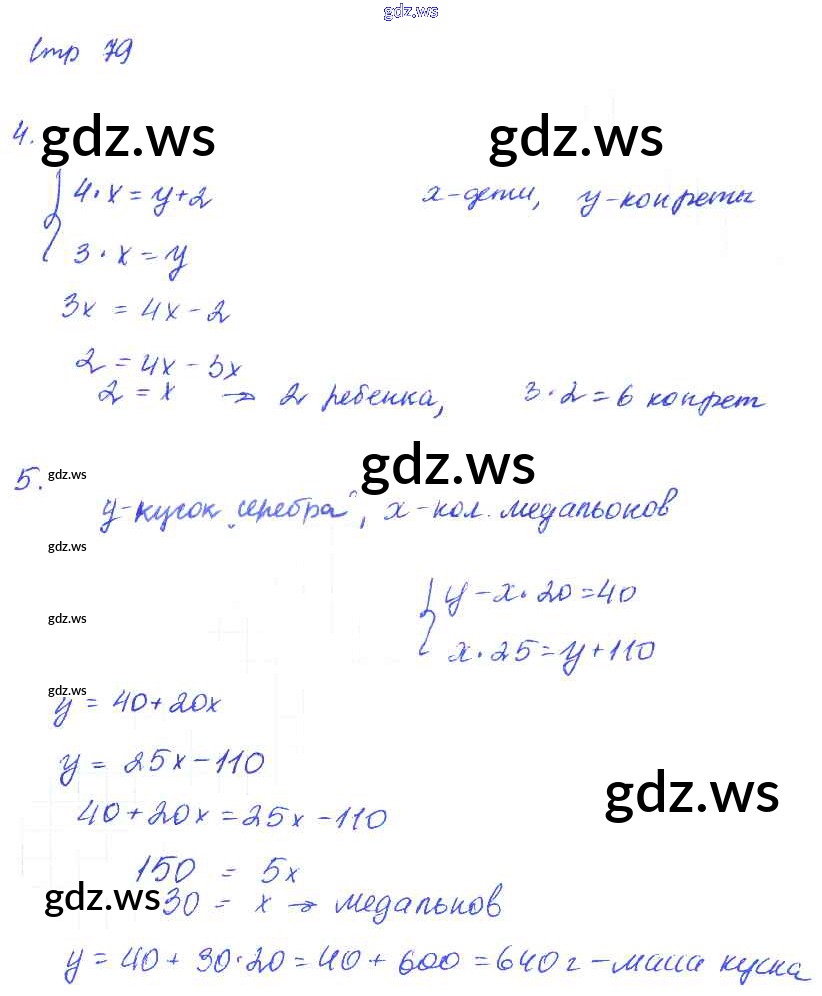 gdz.ws
Стр 79
4.
gdz.ws gdz.ws
4·x = y+2 x-дети, y-конфеты
3·x = y
3x = 4x - 2
2 = 4x - 3x
2 = x → 2 ребенка, 3·2 = 6 конфет
gdz.ws
5. gdz.ws
y-кусок „серебра“, x-кол. медальонов
gdz.ws
y - x·20 = 40
gdz.ws
x·25 = y + 110
gdz.ws
y = 40 + 20x
y = 25x - 110
gdz.ws
40 + 20x = 25x - 110
150 = 5x
gdz.ws
30 = x → медальнов
y = 40 + 30·20 = 40 + 600 = 640 г - маса куска